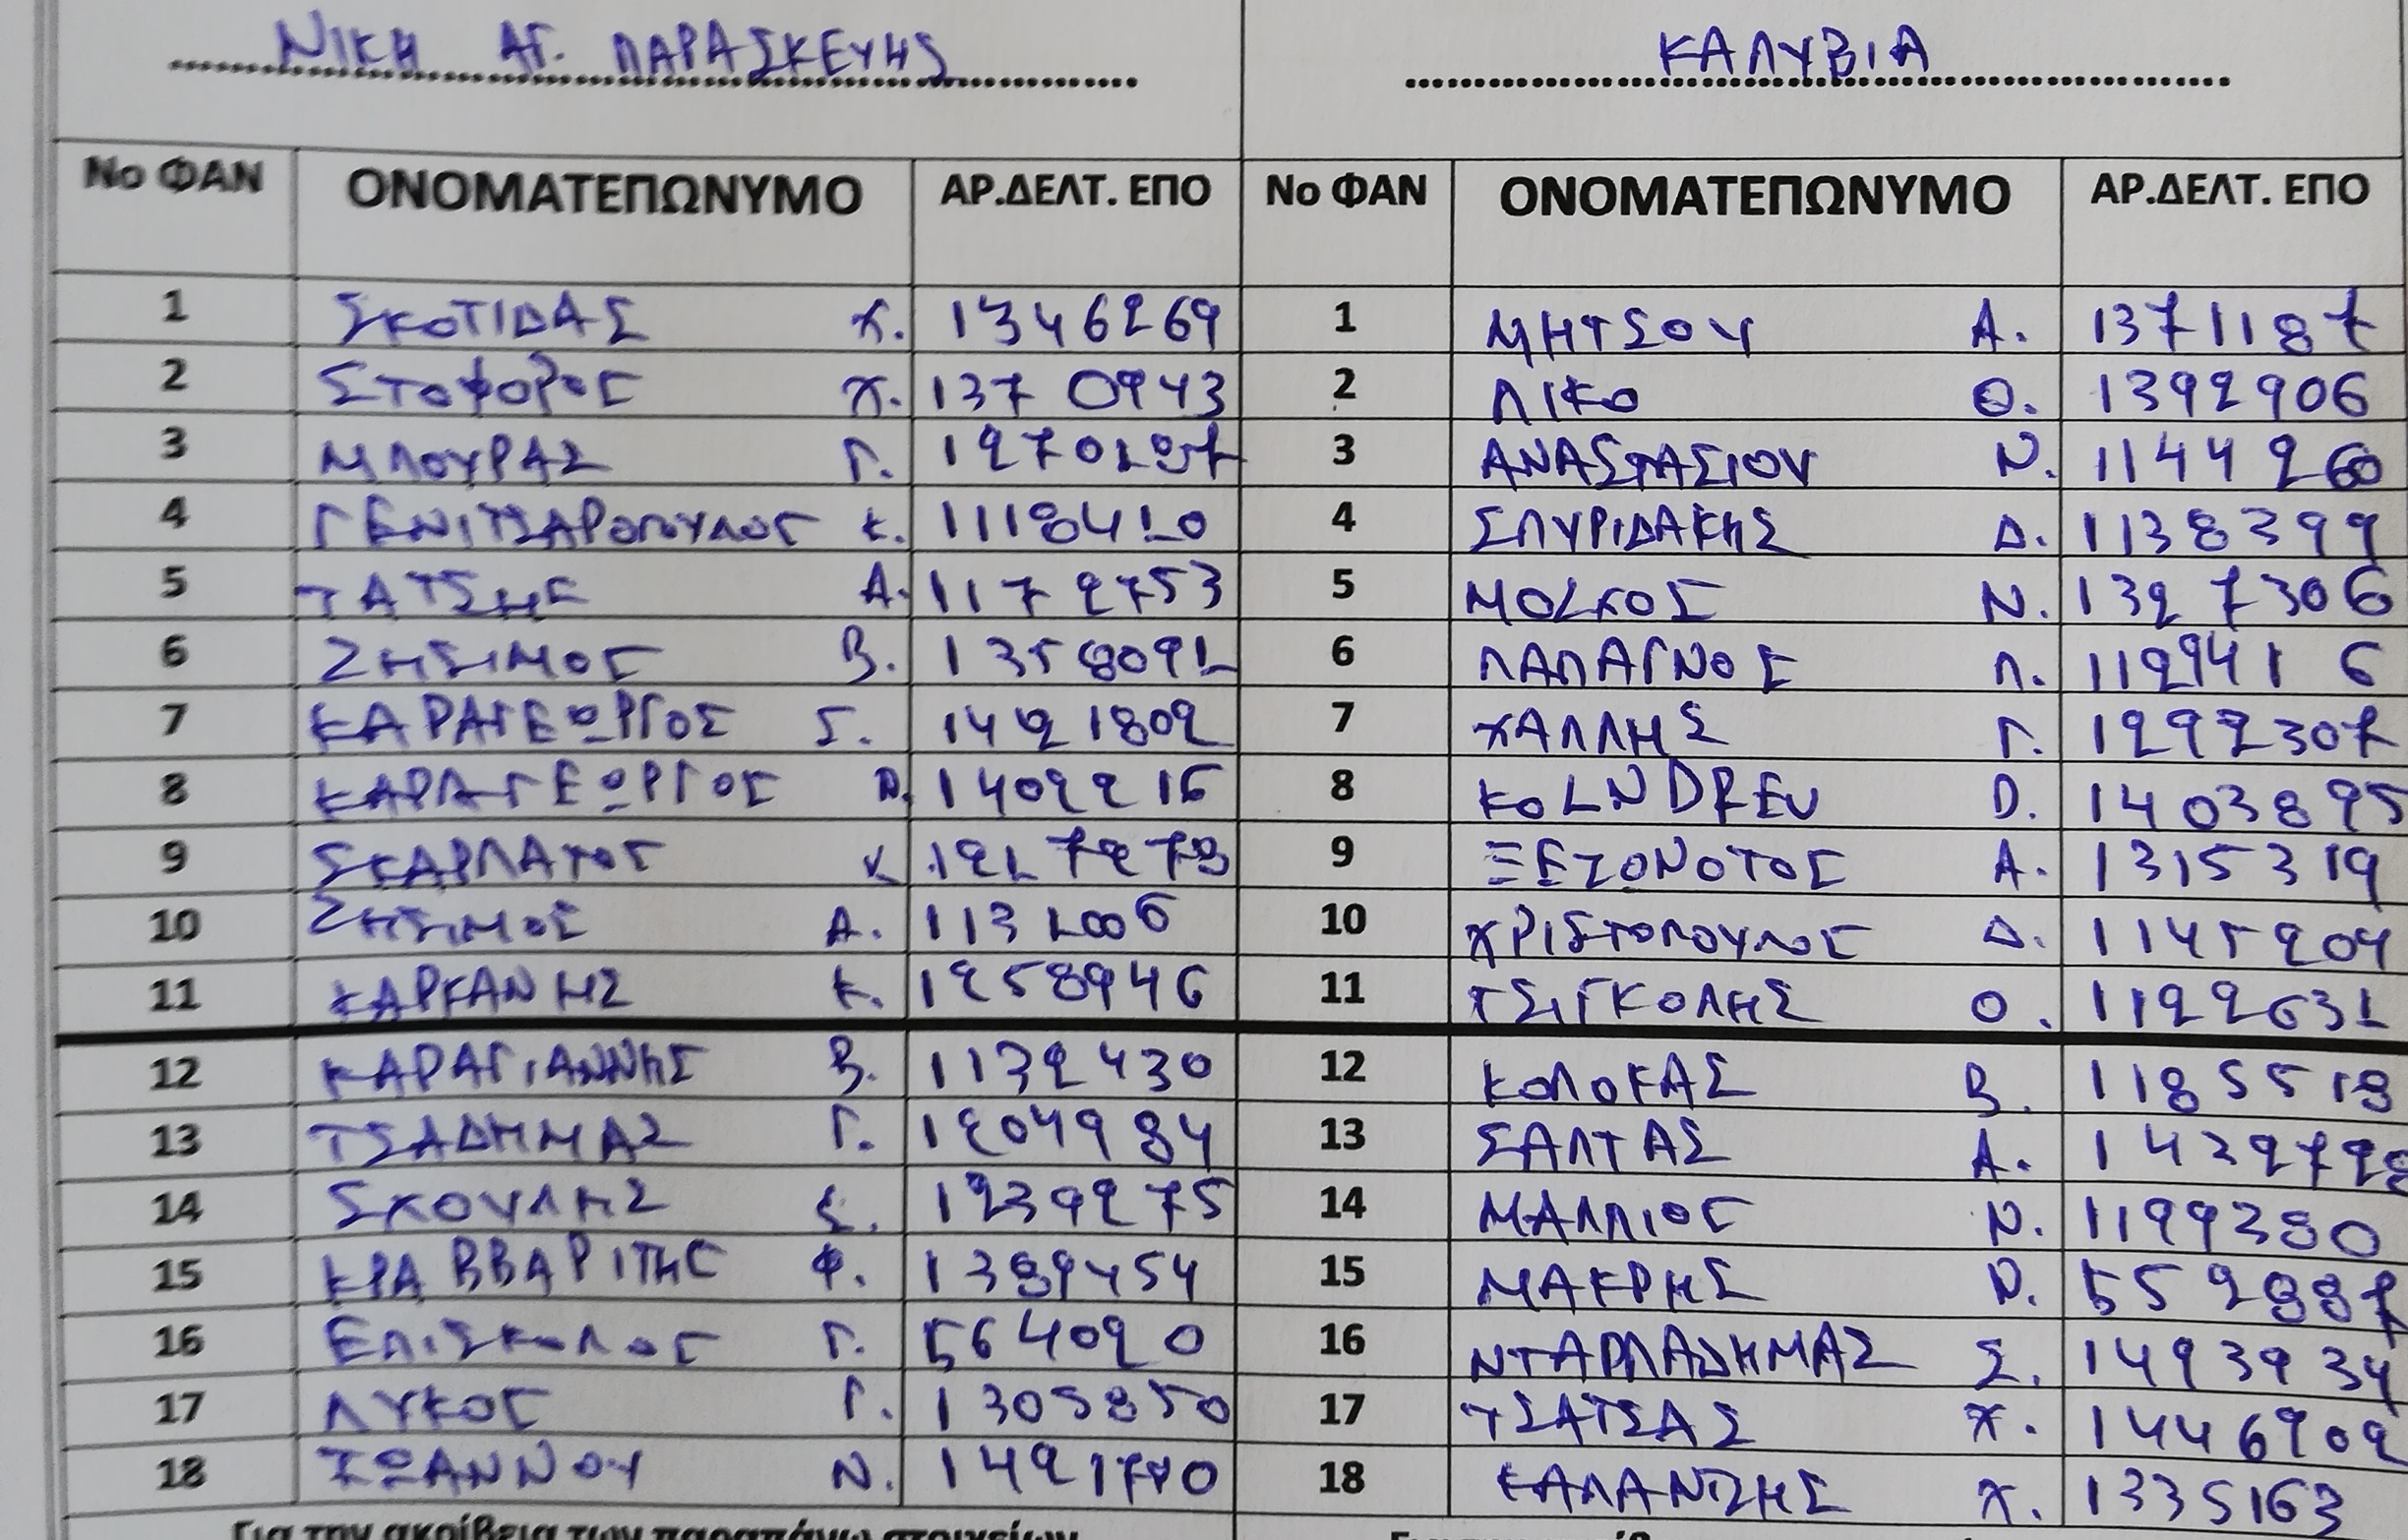 ΝΙΚΗ ΑΓ. ΠΑΡΑΣΚΕΥΗΣ ΚΑΛΥΒΙΑ
Νο ΦΑΝ ΟΝΟΜΑΤΕΠΩΝΥΜΟ ΑΡ.ΔΕΛΤ. ΕΠΟ Νο ΦΑΝ ΟΝΟΜΑΤΕΠΩΝΥΜΟ ΑΡ.ΔΕΛΤ. ΕΠΟ
1 ΣΚΟΤΙΔΑΣ Χ. 1346269 1 ΜΗΤΣΟΥ Α. 1371187
2 ΣΤΟΦΟΡΟΣ Χ. 1370943 2 ΛΙΚΟ Θ. 1392906
3 ΜΠΟΥΡΑΣ Γ. 3 ΑΝΑΣΤΑΣΙΟΥ Ν. 1144260
4 ΓΕΝΙΤΣΑΡΟΠΟΥΛΟΣ Κ. 1118410 4 ΣΠΥΡΙΔΑΚΗΣ Δ. 1138399
5 ΤΑΤΣΗΣ Α. 1172753 5 ΜΟLΧΟΣ Ν. 1327306
6 ΖΗΣΙΜΟΣ Β. 1358091 6 ΠΑΠΑΓΝΟΣ Π. 1129416
7 ΚΑΡΑΓΕΩΡΓΟΣ Σ. 1421802 7 ΧΑΛΛΗΣ Γ. 1292307
8 ΚΑΡΑΓΕΩΡΓΟΣ 1402216 8 KOLNDREU D. 1403895
9 ΣΚΑΡΛΑΤΟΣ Κ 1217273 9 ΞΕΖΟΝΟΤΟΣ Α. 1315319
10 ΖΗΣΙΜΟΣ Α. 1131006 10 ΧΡΙΣΤΟΠΟΥΛΟΣ Δ. 1145209
11 ΚΑΡΚΑΝΗΣ Κ. 1258946 11 ΤΣΙΓΚΟΛΗΣ Ο. 1122631
12 ΚΑΡΑΓΙΑΝΝΗΣ Β. 1132430 12 ΚΟΛΟΚΑΣ Β. 1185518
13 ΤΣΑΔΗΜΑΣ Γ. 1204984 13 ΣΑΛΤΑΣ Α. 1432728
14 ΣΧΟΥΛΗΣ Σ. 1239275 14 ΜΑΛΛΙΟΣ Ν. 1199380
15 ΚΡΑΒΒΑΡΙΤΗΣ Φ. 1389454 15 ΜΑΚΡΗΣ 552887
16 ΕΠΙΣΚΟΠΟΣ Γ. 564020 16 ΝΤΑΡΛΑΔΗΜΑΣ Σ. 1493934
17 ΛΥΚΟΣ Γ. 1305850 17 ΤΣΑΤΣΑΣ Χ. 1446902
18 ΙΩΑΝΝΟΥ Ν. 18 ΚΑΛΑΝΤΖΗΣ Χ. 1335163
Για την ακρίβεια των παραπάνω στοιχείων